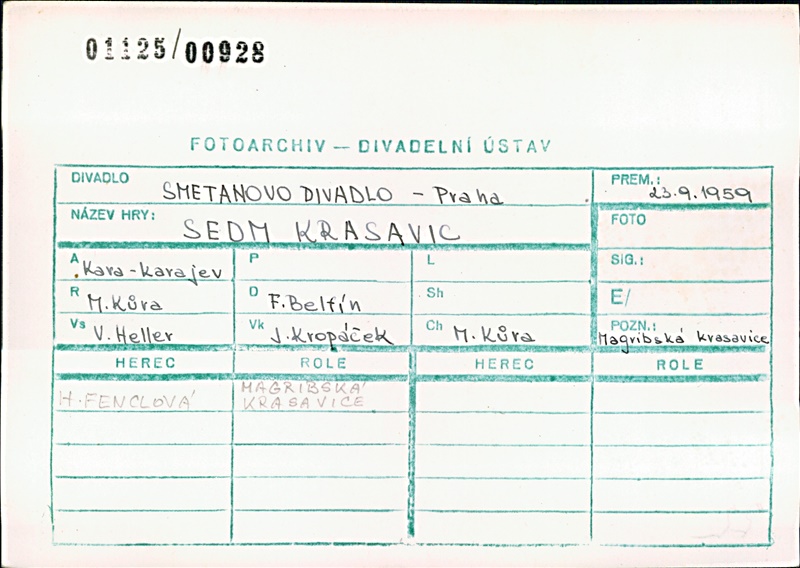 01125/00928
FOTOARCHIV — DIVADELNÍ ÚSTAV
DIVADLO SMETANOVO DIVADLO - Praha PREM.: 23.9.1959
NÁZEV HRY: SEDM KRASAVIC FOTO
A Kara-karajev P L SIG.:
R M. Kůra D F. Belfín Sh E/
Vs V. Heller Vk J. Kropáček Ch M. Kůra POZN.: Magribská krasavice
HEREC ROLE HEREC ROLE
H. FENCLOVÁ MAGRIBSKÁ
KRASAVICE